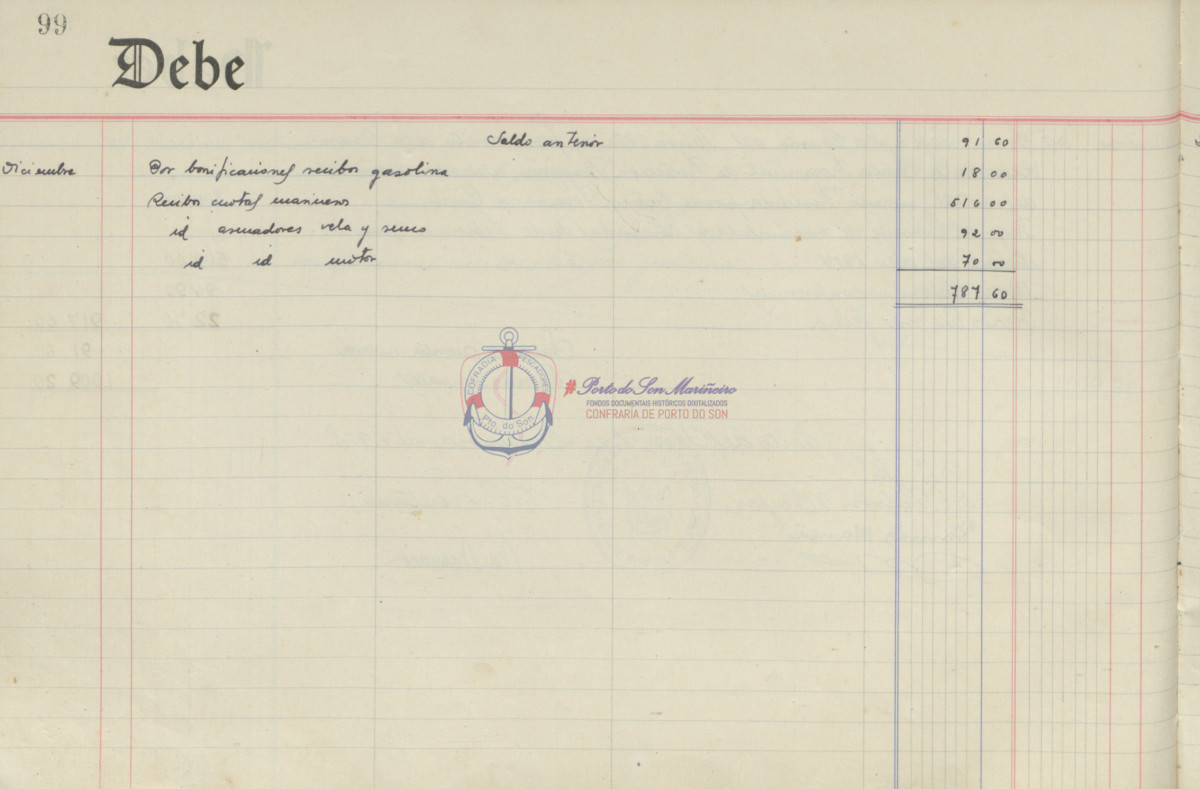 99
Debe
Saldo anterior 91 60
Diciembre Por bonificaciones recibos gasolina 18 00
Recibos cuotas marineros 516 00
id armadores vela y remo 92 00
id id motor 70 00
787 60
COFRADIA PESCADORES
Pto. do Son
#Porto do Son Mariñeiro
FONDOS DOCUMENTAIS HISTÓRICOS DIXITALIZADOS
CONFRARÍA DE PORTO DO SON